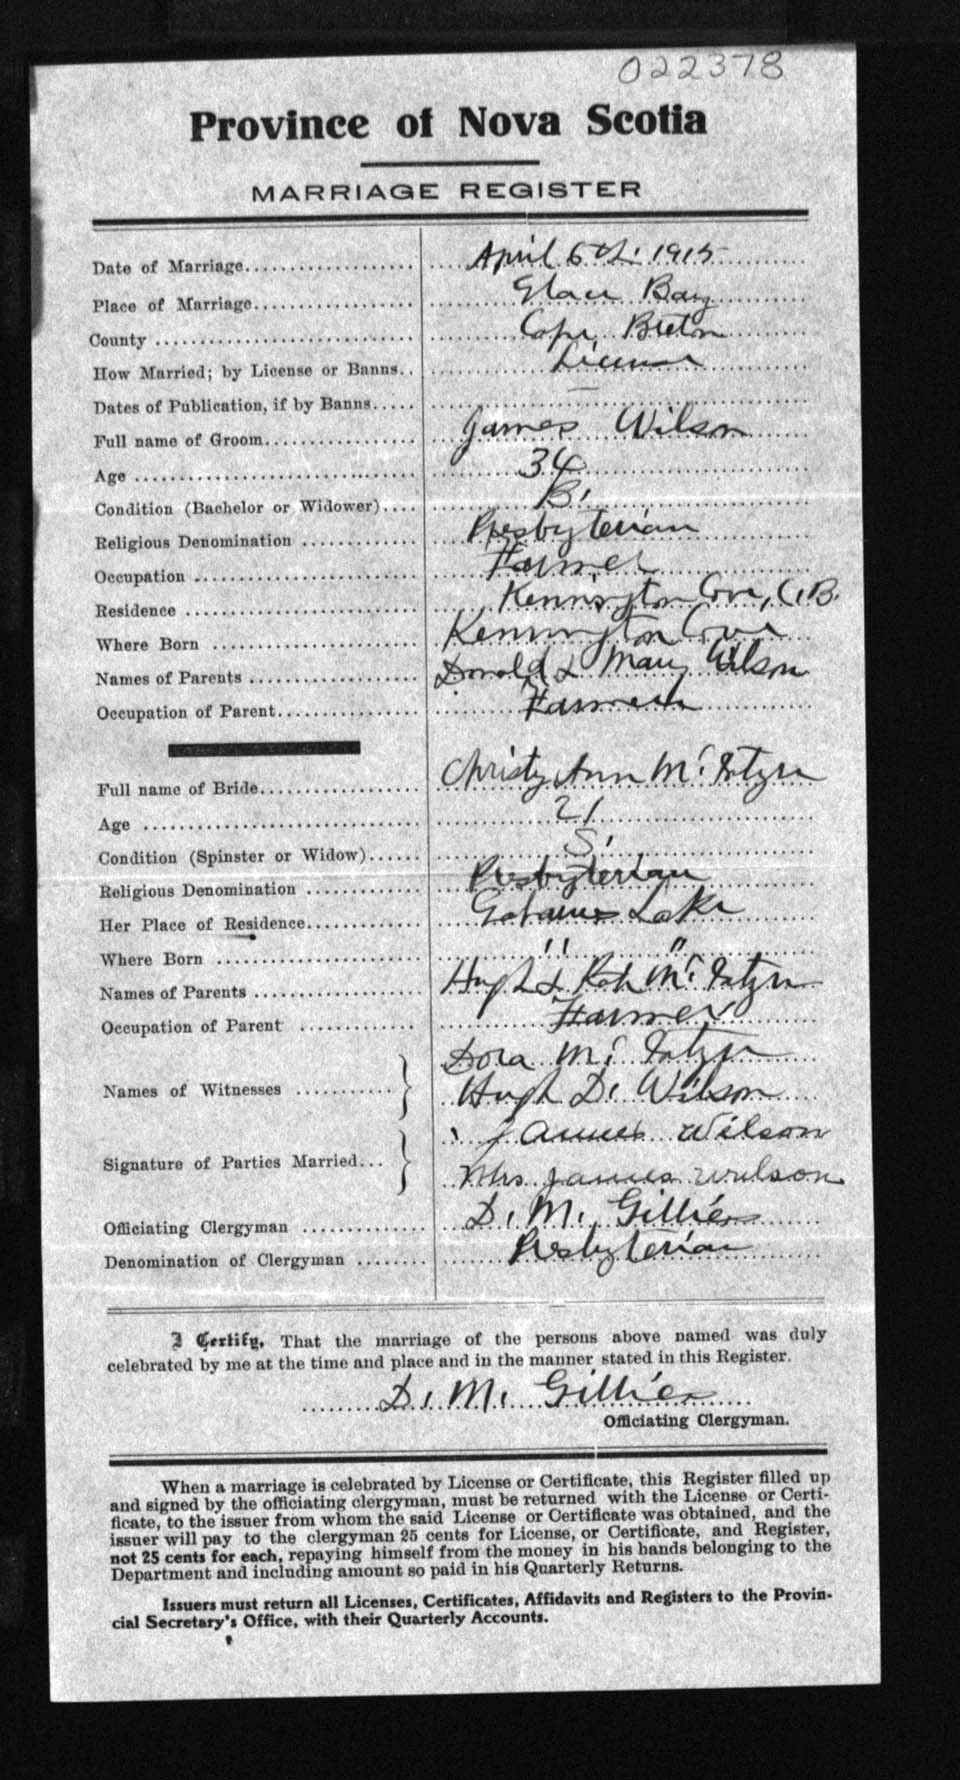 022378
Province of Nova Scotia
MARRIAGE REGISTER
Date of Marriage.................... April 6th. 1915
Place of Marriage.................... Glace Bay
County .................... Cape Breton
How Married; by License or Banns.. License
Dates of Publication, if by Banns..... —
Full name of Groom.................... James Wilson
Age .................... 34
Condition (Bachelor or Widower).... B.
Religious Denomination .................... Presbyterian
Occupation .................... Farmer
Residence .................... Kennington Cove, C.B.
Where Born .................... Kennington Cove
Names of Parents .................... Donald & Mary Wilson
Occupation of Parent.................... Farmer
Full name of Bride.................... Christy Ann McIntyre
Age .................... 21
Condition (Spinster or Widow)...... S.
Religious Denomination .................... Presbyterian
Her Place of Residence.................... Lake
Where Born .................... " "
Names of Parents .................... Hugh & McIntyre
Occupation of Parent .................... Farmer
Names of Witnesses .................... Dora McIntyre
Hugh D. Wilson
Signature of Parties Married... James Wilson
Mrs James Wilson
Officiating Clergyman .................... D. M. Gillies
Denomination of Clergyman ........ Presbyterian
I Certify, That the marriage of the persons above named was duly
celebrated by me at the time and place and in the manner stated in this Register.
D. M. Gillies
Officiating Clergyman.
When a marriage is celebrated by License or Certificate, this Register filled up
and signed by the officiating clergyman, must be returned with the License or Certi-
ficate, to the issuer from whom the said License or Certificate was obtained, and the
issuer will pay to the clergyman 25 cents for License, or Certificate, and Register,
not 25 cents for each, repaying himself from the money in his hands belonging to the
Department and including amount so paid in his Quarterly Returns.
Issuers must return all Licenses, Certificates, Affidavits and Registers to the Provin-
cial Secretary's Office, with their Quarterly Accounts.